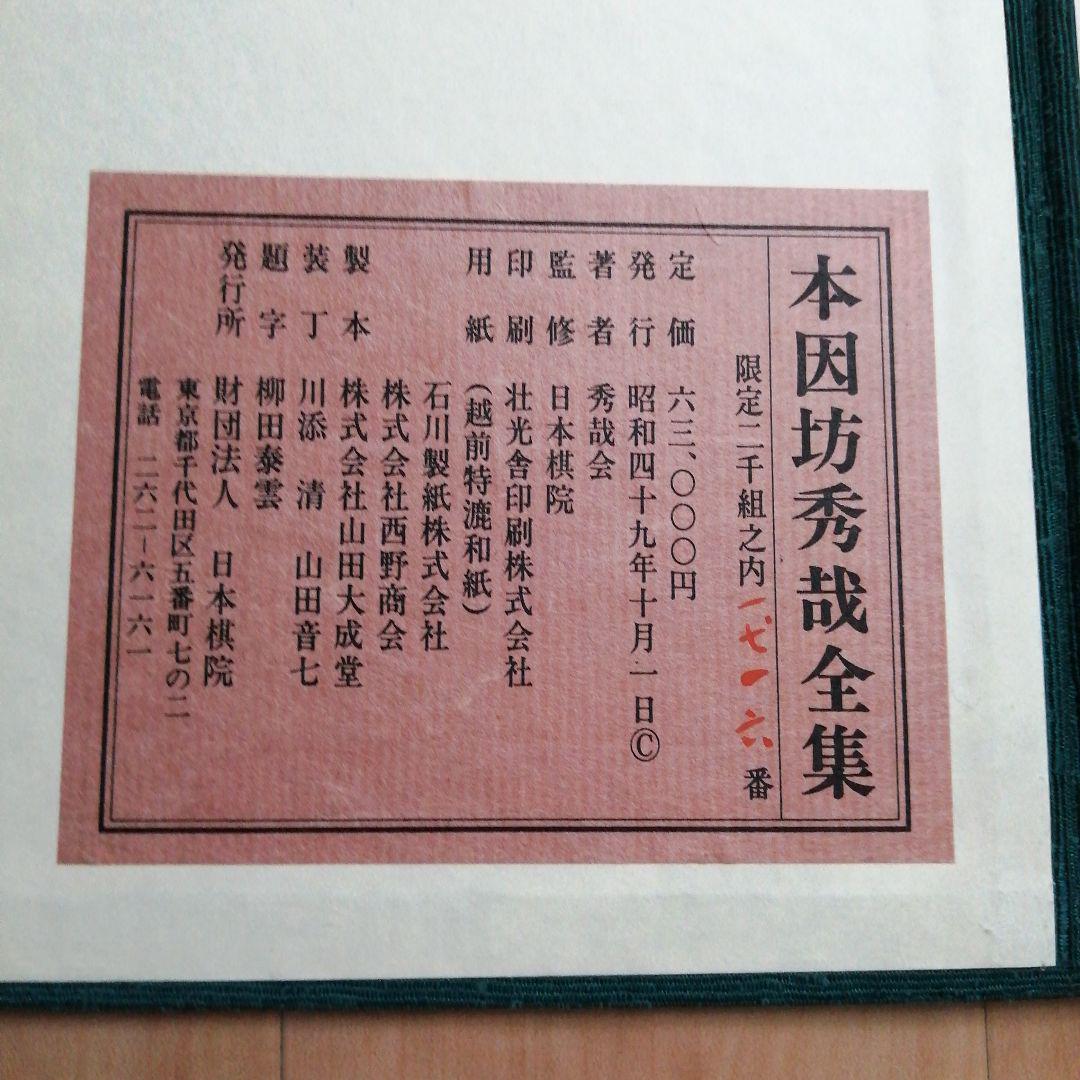 本因坊秀哉全集
限定二千組之内 一七一六 番
定価 六三、〇〇〇円
発行 昭和四十九年十月一日©
著者 秀哉会
監修 日本棋院
印刷 壮光舎印刷株式会社
用紙 (越前特漉和紙)
石川製紙株式会社
株式会社西野商会
製本 株式会社山田大成堂
装丁 川添 清 山田音七
題字 柳田泰雲
発行所 財団法人 日本棋院
東京都千代田区五番町七の二
電話 二六二-六一六一